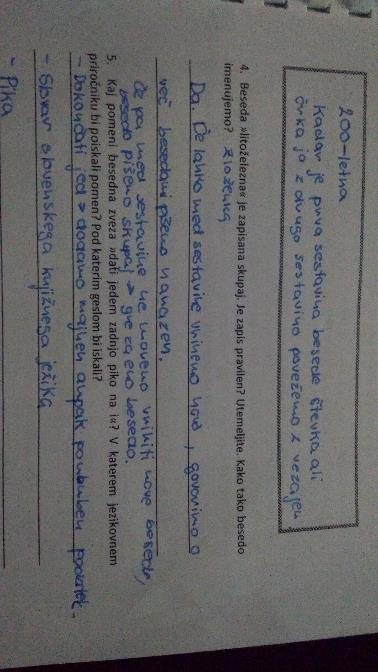 200-letna
Kadar je prva sestavina besede številka ali
črka jo z drugo sestavino povežemo z vezajem
4. Beseda »litoželezna« je zapisana skupaj. Je zapis pravilen? Utemeljite. Kako tako besedo
imenujemo? zloženka
Da. Če lahko med sestavine vrinemo nove, govorimo o
več besedah pišemo narazen.
Če pa med sestavine ne moremo vriniti nove besede,
besedo pišemo skupaj → gre za eno besedo.
5. Kaj pomeni besedna zveza »dati jedem zadnjo piko na i«? V katerem jezikovnem
priročniku bi poiskali pomen? Pod katerim geslom bi iskali?
- Dokončati jed → dodamo majhen ampak poseben
- Slovar slovenskega knjižnega jezika
- Pika